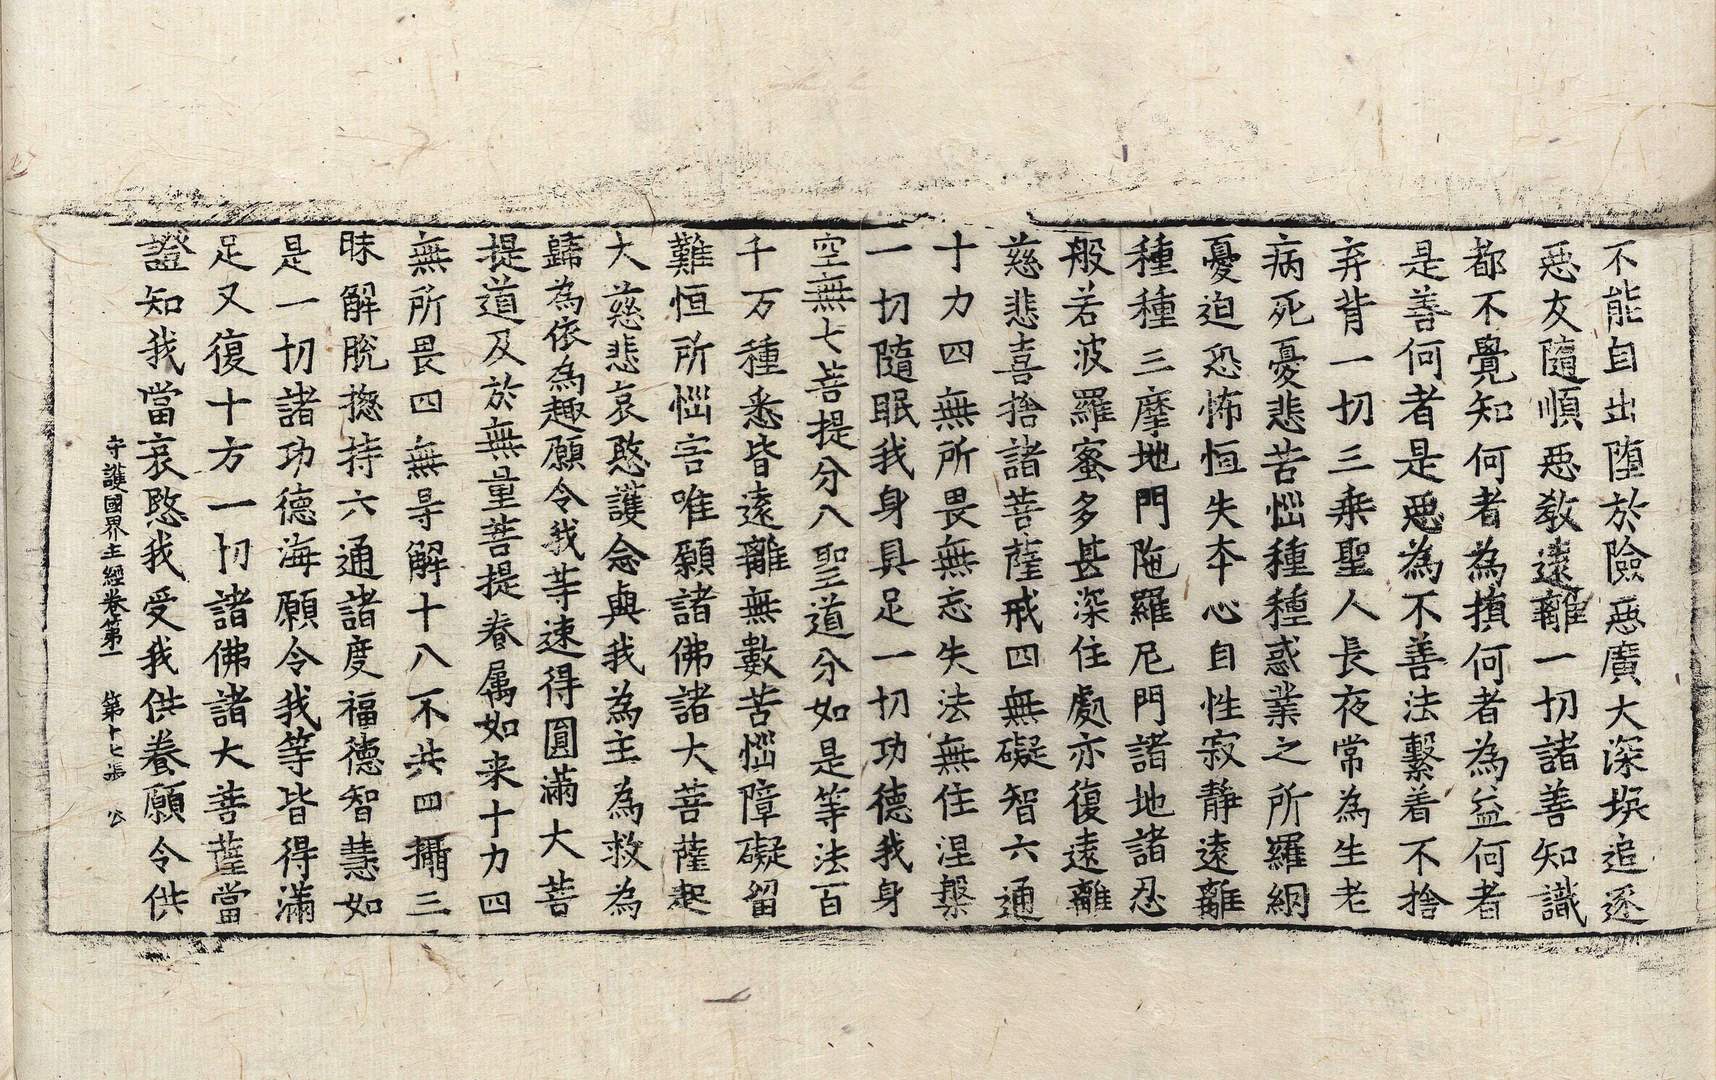 不能自出堕於險惡廣大深坑追逐
惡友隨順惡教遠離一切諸善知識
都不覺知何者為損何者為益何者
是善何者是惡為不善法繫着不捨
弃背一切三乘聖人長夜常為生老
病死憂悲苦惱種種惑業之所羅網
憂迫恐怖恒失本心自性寂靜遠離
種種三摩地門陁羅尼門諸地諸忍
般若波羅蜜多甚深住處亦復遠離
慈悲喜捨諸菩薩戒四無礙智六通
十力四無所畏無忘失法無住涅槃
一切隨眠我身具足一切功德我身
空無七菩提分八聖道分如是等法百
千万種悉皆遠離無數苦惱障礙留
難恒所惱害唯願諸佛諸大菩薩起
大慈悲哀愍護念與我為主為救為
歸為依為趣願令我等速得圓滿大菩
提道及於無量菩提眷属如来十力四
無所畏四無㝵解十八不共四攝三
昧解脫揔持六通諸度福德智慧如
是一切諸功德海願令我等皆得滿
足又復十方一切諸佛諸大菩薩當
證知我當哀愍我受我供養願令供
守護國界主經卷第一 第十七張 公